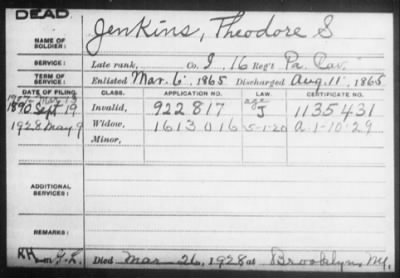 DEAD.
NAME OF SOLDIER: Jenkins, Theodore S
SERVICE: Late rank, Co. I, 16 Reg't Pa. Cav.
TERM OF SERVICE: Enlisted Mar. 6, 1865 Discharged Aug. 11, 1865
DATE OF FILING. CLASS. APPLICATION NO. LAW. CERTIFICATE NO.
1890 Sept 19 Invalid, 922817 age J 1135431
1928 May 9 Widow, 1613016 5-1-20 A-1-10-29
Minor,
ADDITIONAL SERVICES:
REMARKS:
Died Mar 26, 1928 at Brooklyn, NY.